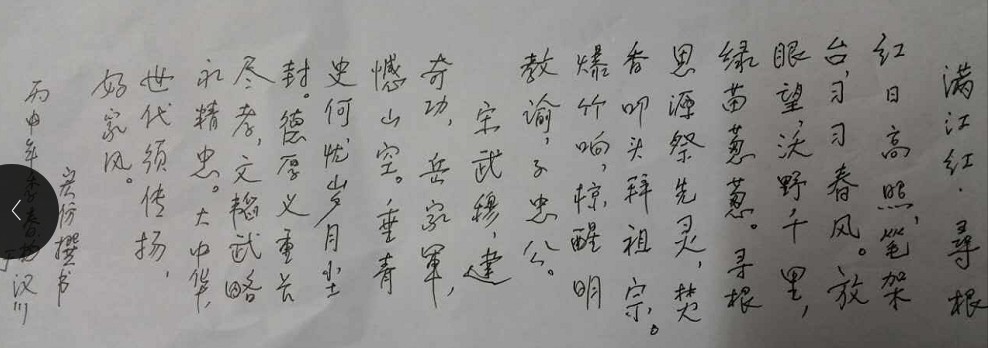 满江红·寻根
红日高照,笔架
台,习习春风。放
眼望,沃野千里,
绿苗葱葱。寻根
思源祭先灵,焚
香叩头拜祖宗。
爆竹响,惊醒明
教谕,子忠公。
宋武穆,建
奇功,岳家军,
憾山空。垂青
史何忧岁月尘
封。德厚义重长
尽孝,文韬武略
永精忠。大中华,
世代须传扬,
好家风。
撰书
丙申年季春於汉川